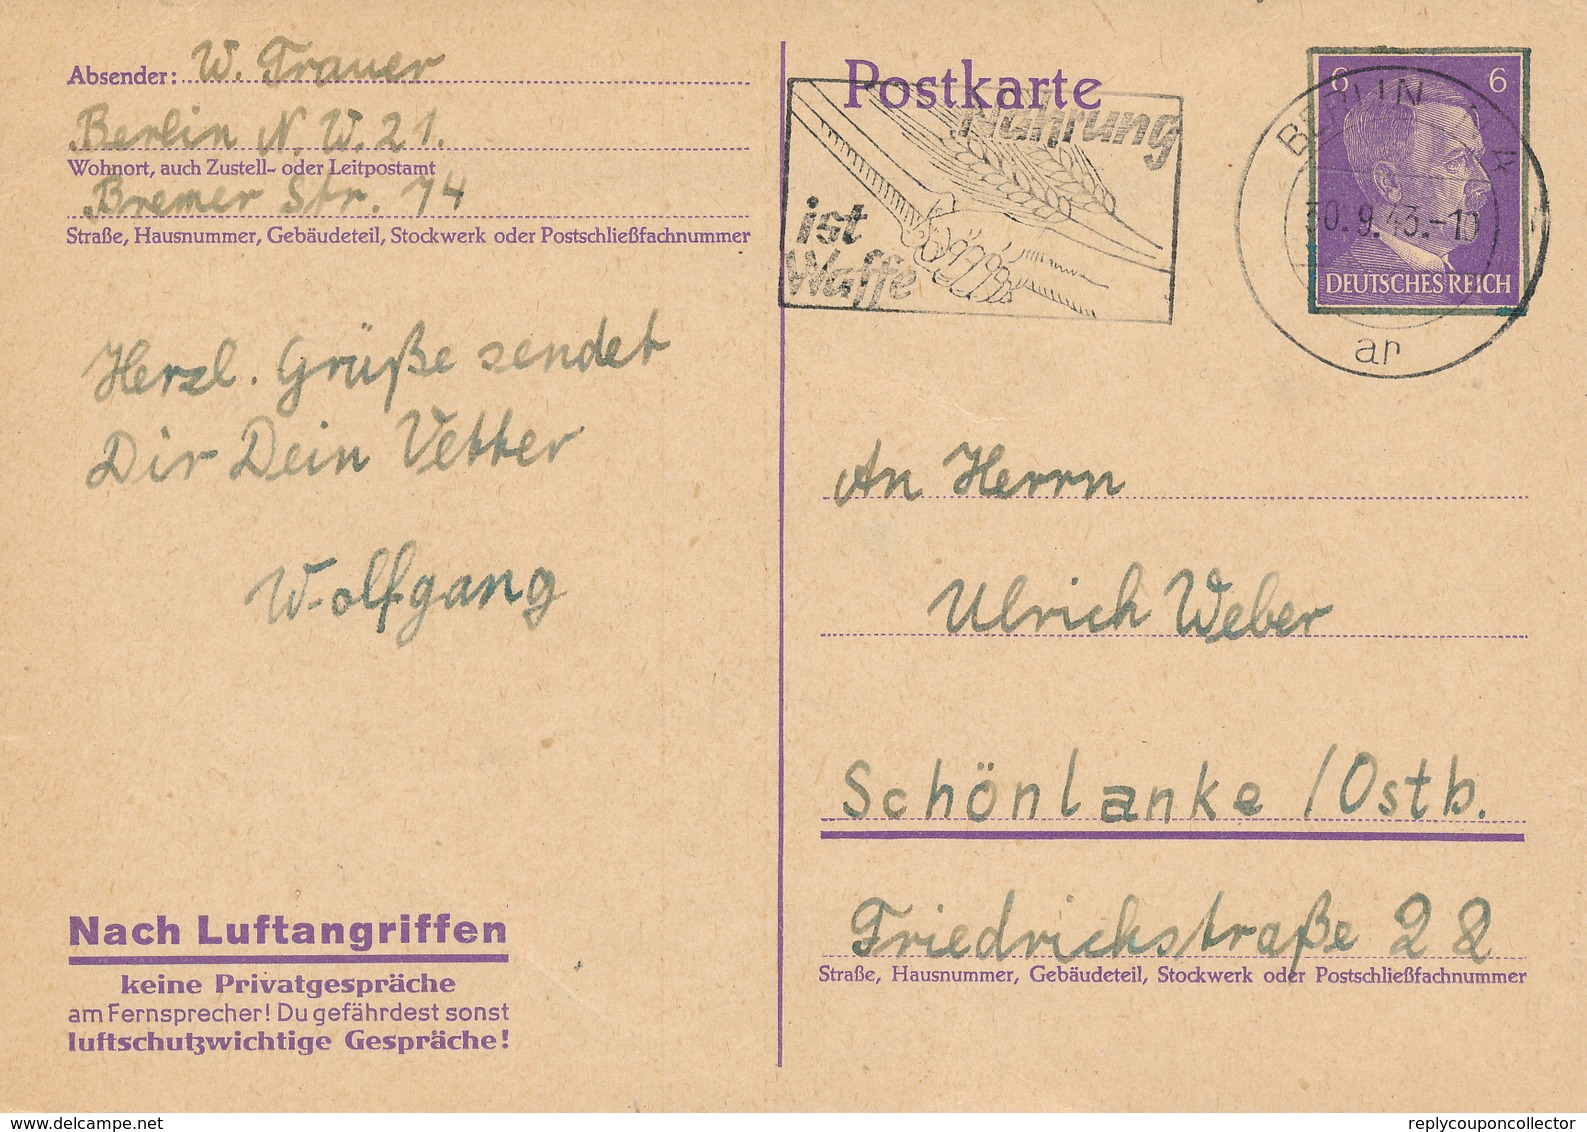 Absender: W. Trauer
Berlin N.W. 21.
Wohnort, auch Zustell- oder Leitpostamt
Bremer Str. 74
Straße, Hausnummer, Gebäudeteil, Stockwerk oder Postschließfachnummer
Herzl. Grüße sendet
Dir Dein Vetter
Wolfgang
Nach Luftangriffen
keine Privatgespräche
am Fernsprecher! Du gefährdest sonst
luftschutzwichtige Gespräche!
Postkarte
Nahrung
ist
Waffe
6 6
DEUTSCHES REICH
BERLIN 4
30.9.43.-10
ar
An Herrn
Ulrich Weber
Schönlanke /Ostb.
Friedrichstraße 28
Straße, Hausnummer, Gebäudeteil, Stockwerk oder Postschließfachnummer
delcampe.net
replycouponcollector